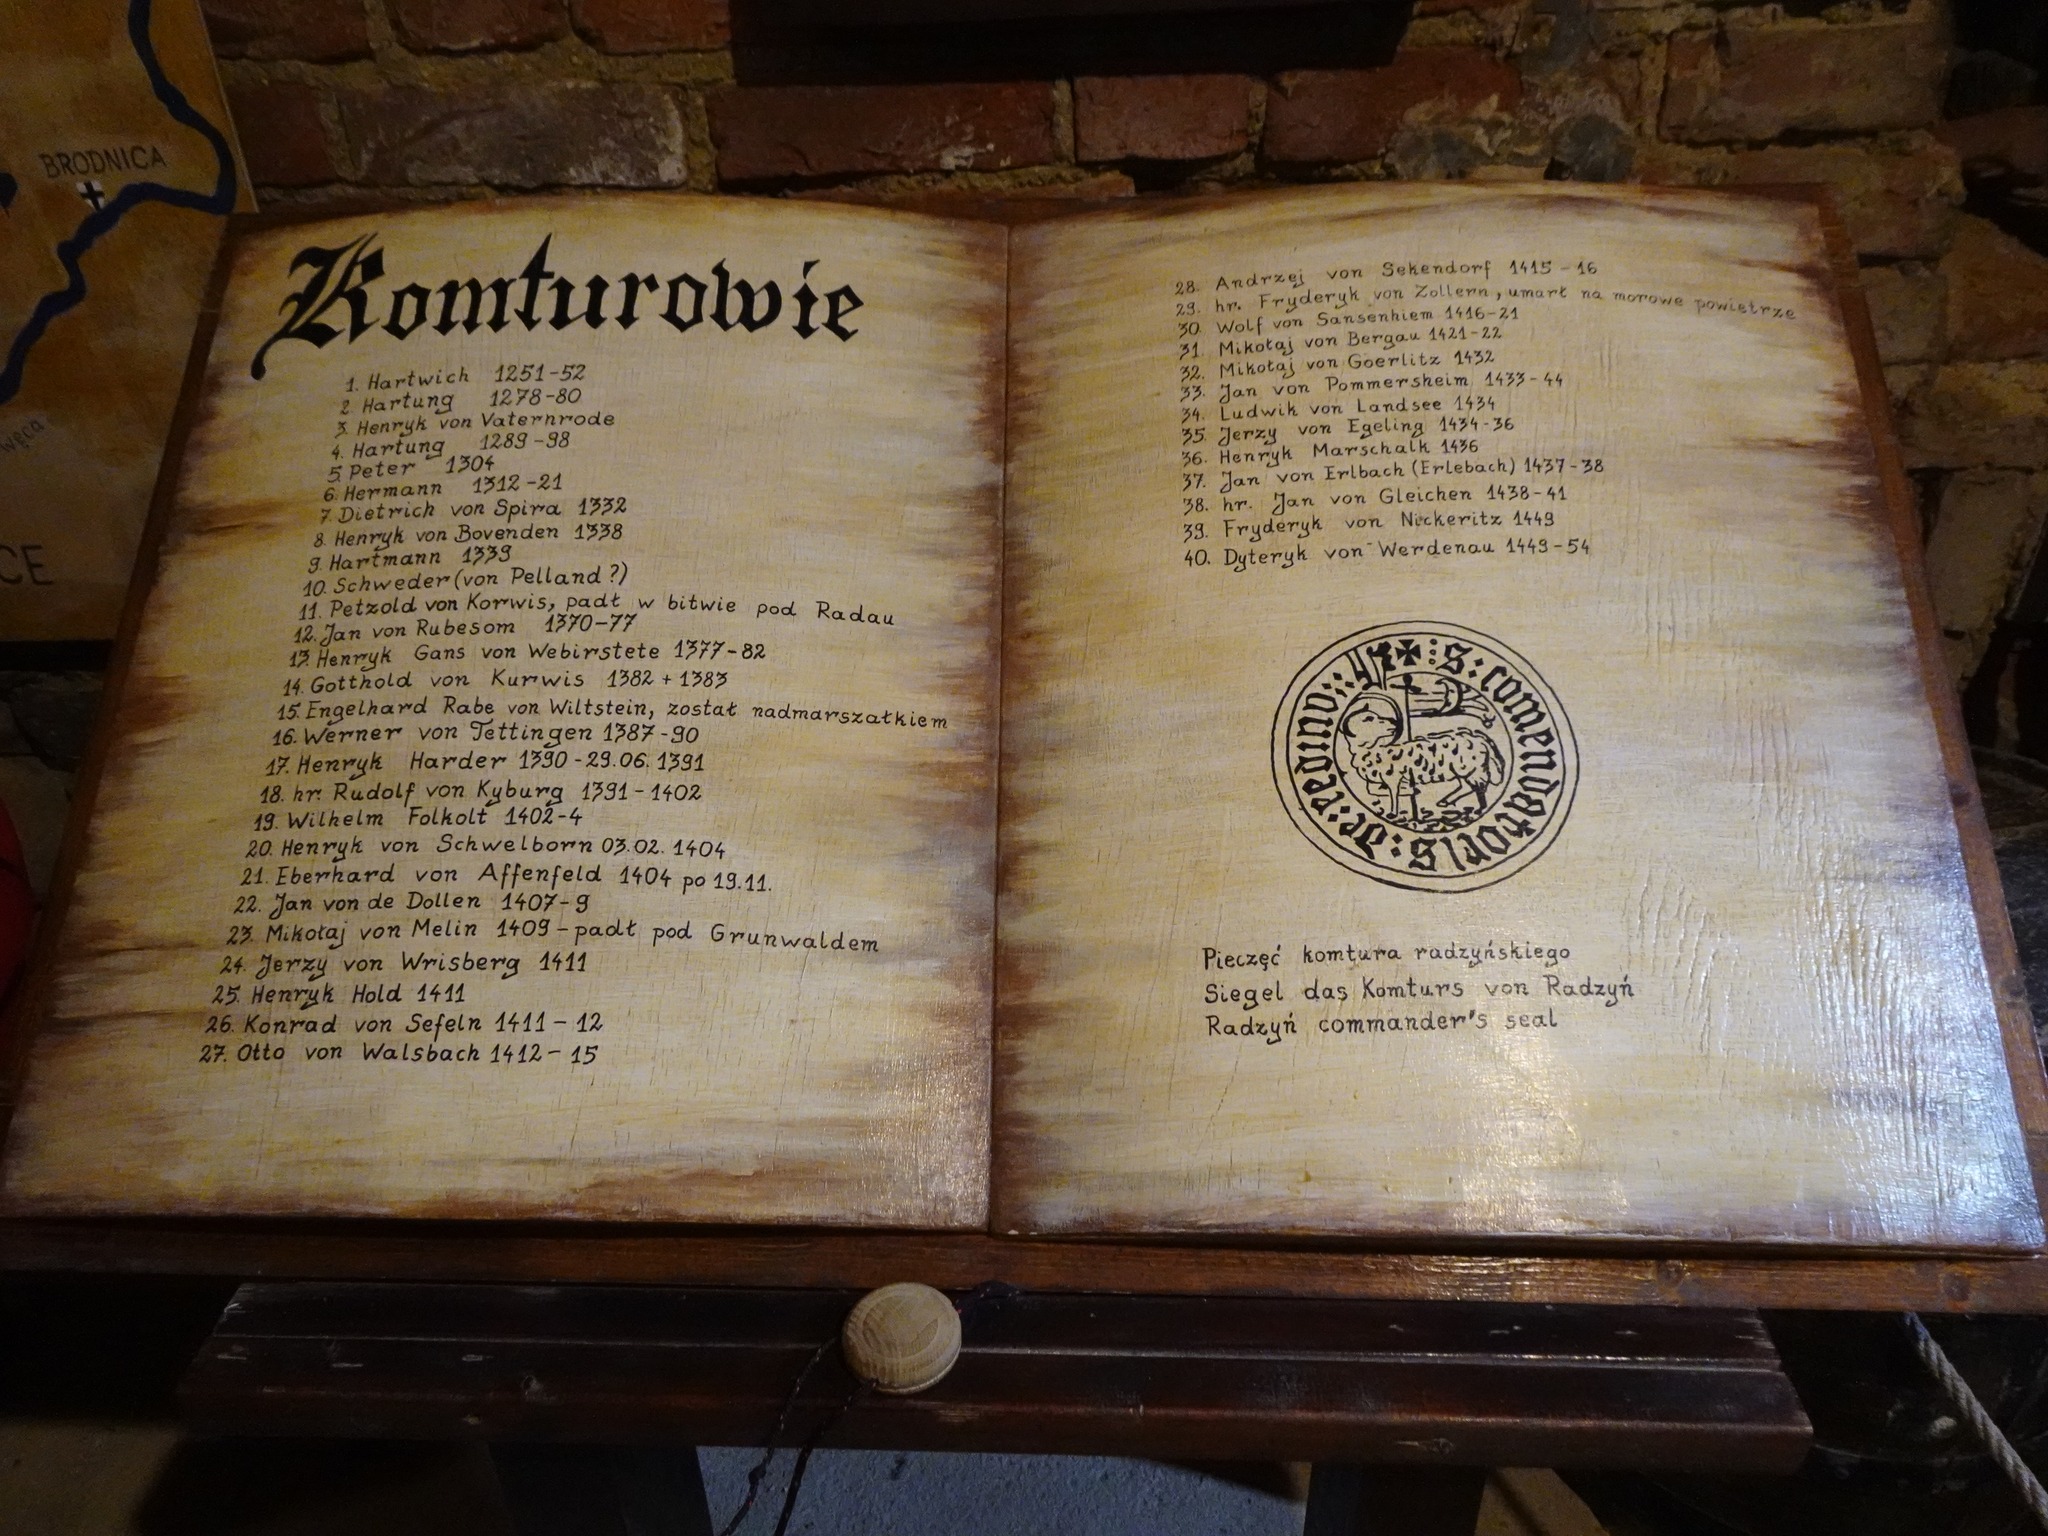 BRODNICA
CE
Komturowie
1. Hartwich 1251-52
2. Hartung 1278-80
3. Henryk von Vaternrode
4. Hartung 1289-98
5. Peter 1304
6. Hermann 1312-21
7. Dietrich von Spira 1332
8. Henryk von Bovenden 1338
9. Hartmann 1339
10. Schweder (von Pelland?)
11. Petzold von Korwis, padł w bitwie pod Radau
12. Jan von Rubesom 1370-77
13. Henryk Gans von Webirstete 1377-82
14. Gotthold von Kurwis 1382 + 1383
15. Engelhard Rabe von Wiltstein, został nadmarszałkiem
16. Werner von Tettingen 1387-90
17. Henryk Harder 1390-29.06.1391
18. hr. Rudolf von Kyburg 1391-1402
19. Wilhelm Folkolt 1402-4
20. Henryk von Schwelborn 03.02.1404
21. Eberhard von Affenfeld 1404 po 19.11.
22. Jan von de Dollen 1407-9
23. Mikołaj von Melin 1409-padł pod Grunwaldem
24. Jerzy von Wrisberg 1411
25. Henryk Hold 1411
26. Konrad von Sefeln 1411-12
27. Otto von Walsbach 1412-15
28. Andrzej von Sekendorf 1415-16
29. hr. Fryderyk von Zollern, umarł na morowe powietrze
30. Wolf von Sansenhiem 1416-21
31. Mikołaj von Bergau 1421-22
32. Mikołaj von Goerlitz 1432
33. Jan von Pommersheim 1433-44
34. Ludwik von Landsee 1434
35. Jerzy von Egeling 1434-36
36. Henryk Marschalk 1436
37. Jan von Erlbach (Erlebach) 1437-38
38. hr. Jan von Gleichen 1438-41
39. Fryderyk von Nickeritz 1449
40. Dyteryk von Werdenau 1449-54
S: comendatoris: de:
Pieczęć komtura radzyńskiego
Siegel das Komturs von Radzyń
Radzyń commander's seal